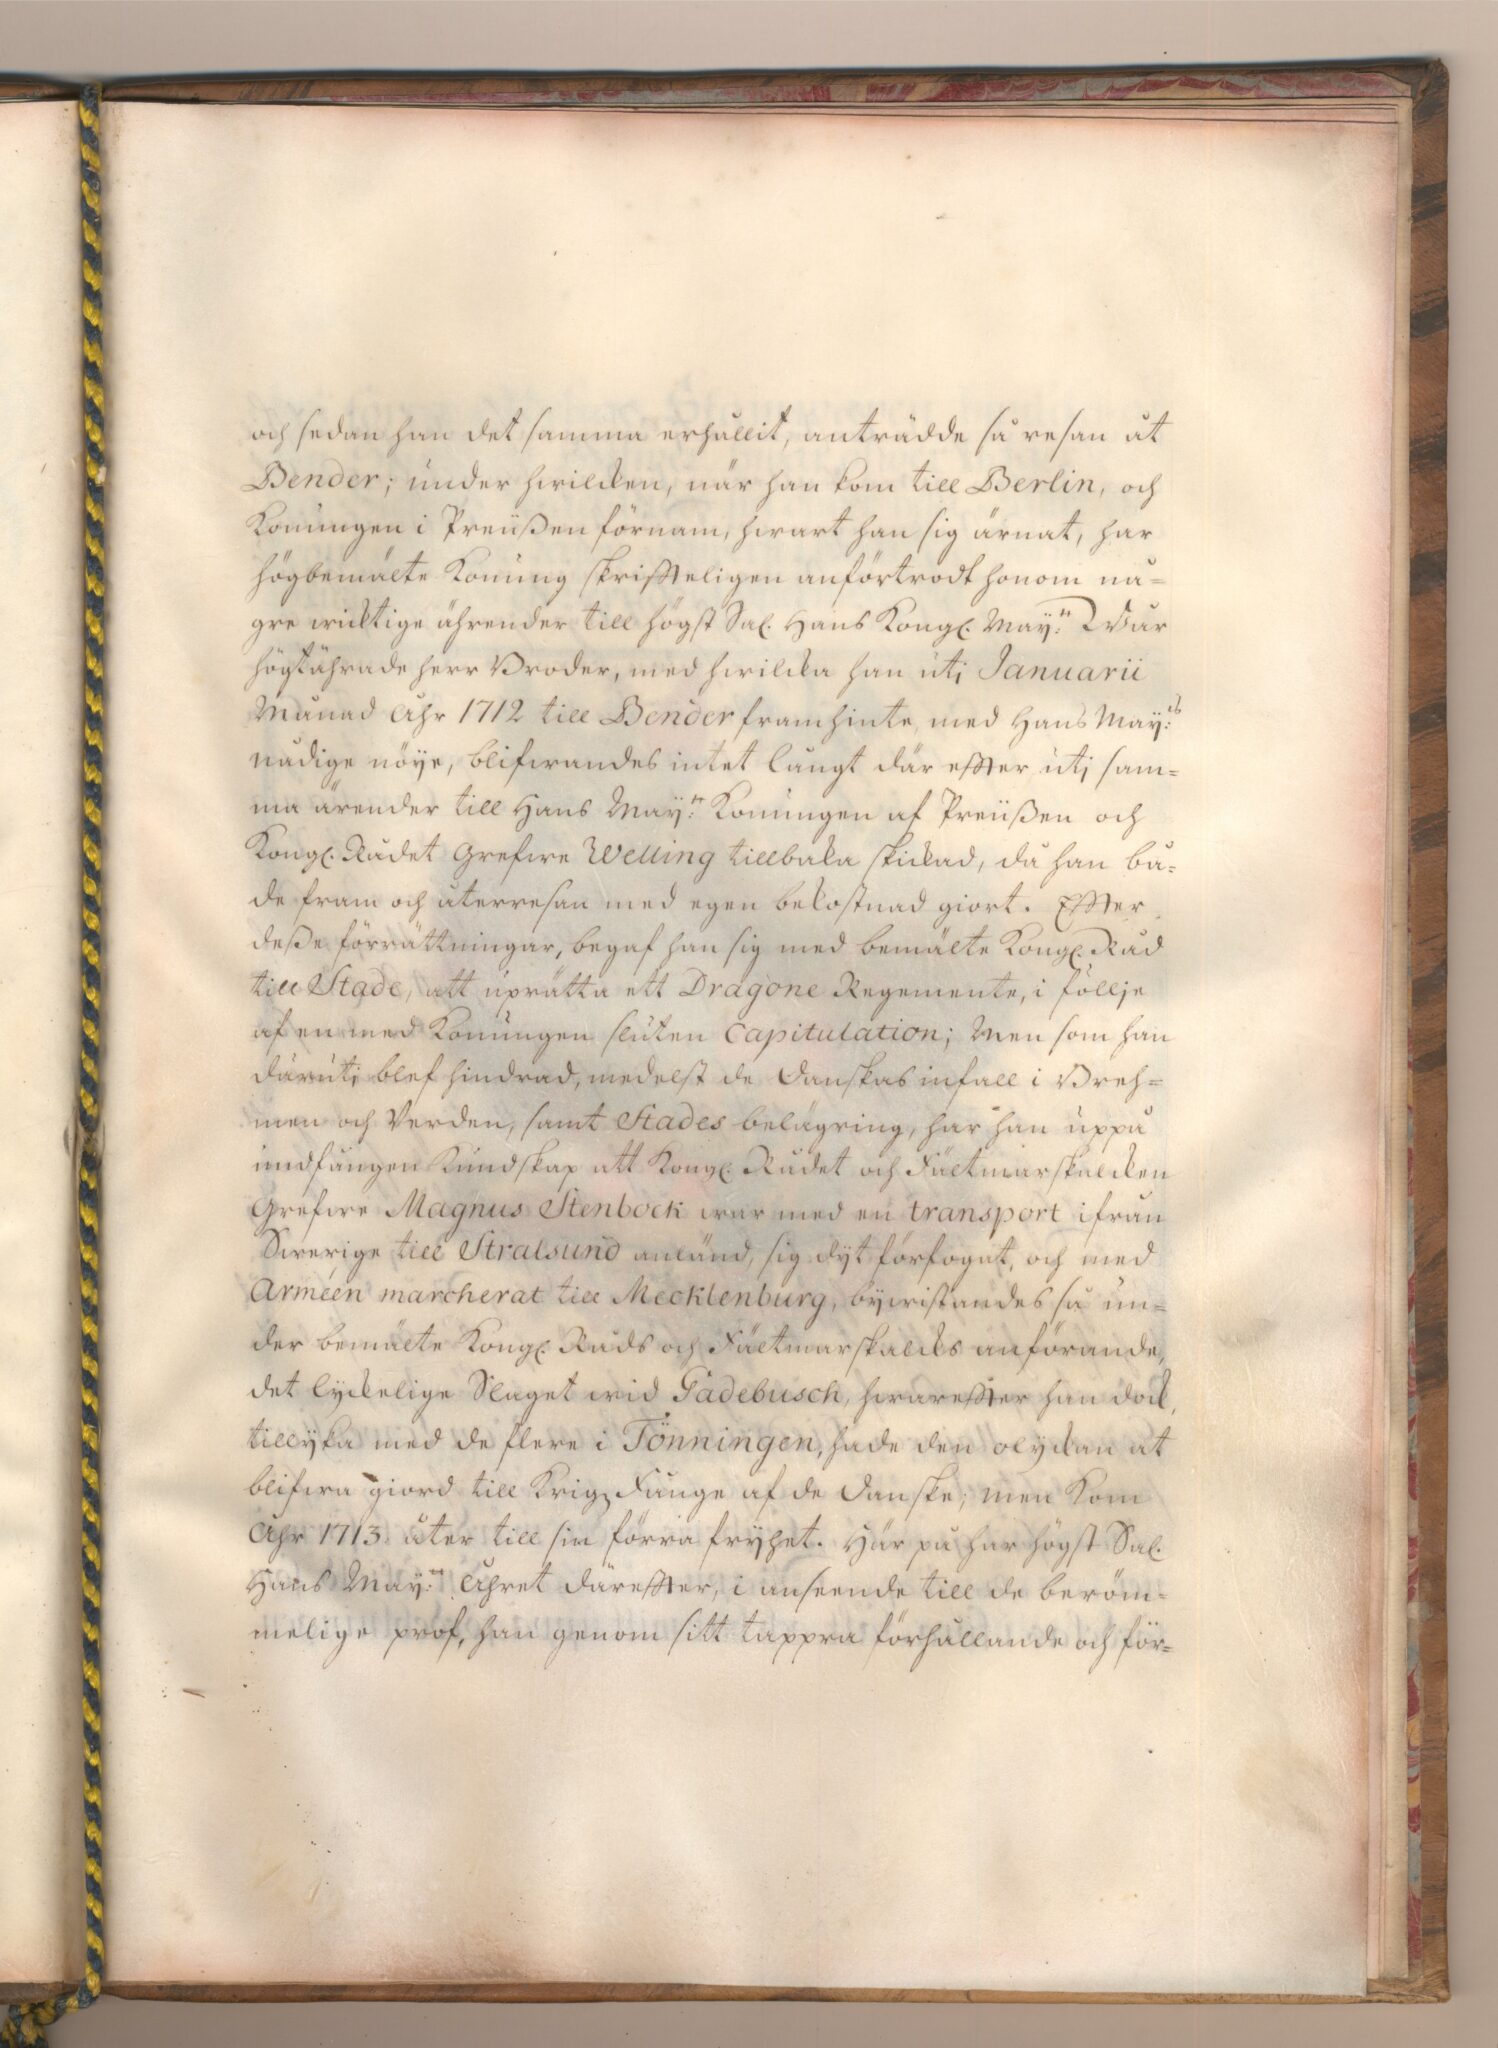 och sedan han det samma erhållit, anträdde så resan åt
Bender; under hwilcken, när han kom till Berlin, och
Konungen i Preüßen förnam, hwart han sig ärnat, har
högbemälte Konung skriffteligen anförtrodt honom nå-
gre wicktige ährender till högst Sal. Hans Kongl. May:tt Wår
högstährade herr Broder, med hwilcka han uti Januarii
Månad Åhr 1712 till Bender framhinte, med Hans May:ts
nådige nöye, blifwandes intet långt där effter uti sam-
ma ärender till Hans May:tt Konungen af Preüßen och
Kongl. Rådet Grefwe Welling tillbaka skickad, då han bå-
de fram och återresan med egen bekostnad giort. Effter
deße förrättningar, begaf han sig med bemälte Kongl. Råd
till Stade, att uprätta ett Dragone Regemente, i föllje
af en med Konungen sluten Capitulation; Men som han
däruti blef hindrad, medelst de Danskas infall i Breh-
men och Verden, samt Stades belägring, har han uppå
undfången Kundskap att Kongl. Rådet och Fältmarskalcken
Grefwe Magnus Stenbock war med en transport ifrån
Swerige till Stralsund anländ, sig dyt förfogat, och med
Arméen marcherat till Mecklenburg, bywistandes så un-
der bemälte Kongl. Råds och Fältmarskalcks anförande,
det lyckelige Slaget wid Gadebusch, hwareffter han dock,
tillyka med de flere i Tönningen, hade den olyckan at
blifwa giord till Krigz Fånge af de Danske; men kom
Åhr 1713 åter till sin förra fryhet. Här på har högst Sal.
Hans May:tt Åhret däreffter, i anseende till de beröm-
melige prof, han genom sitt tappra förhållande och för-